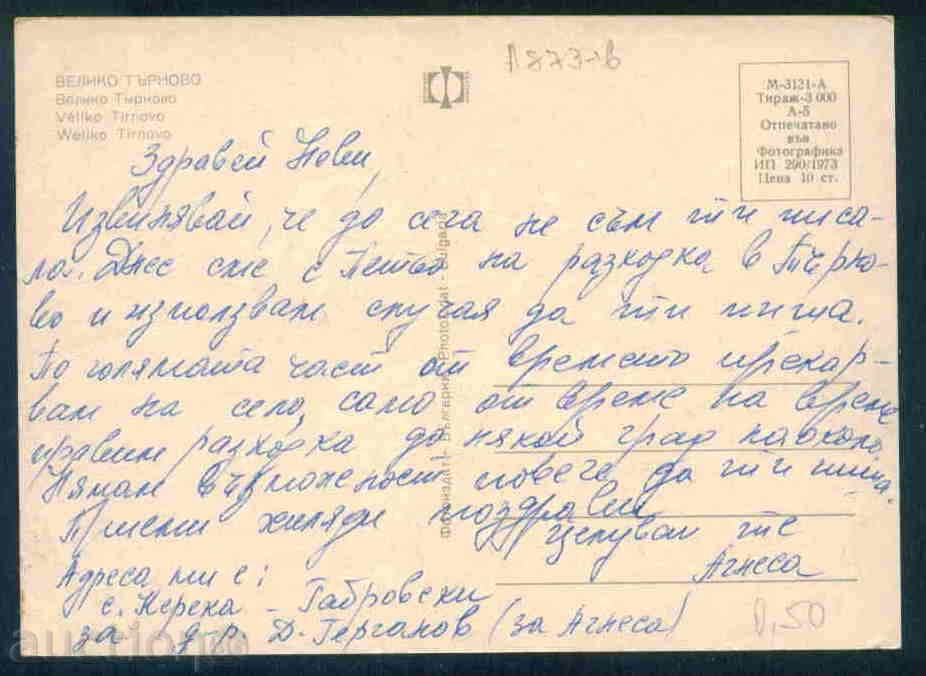 Л 873-ів
ВЕЛИКО ТЪРНОВО
Велико Тырново
Véliko Tirnovo
Weliko Tirnovo
М-3121-А
Тираж-3 000
А-5
Отпечатано
във
Фотографика
ИП 290/1973
Цена 10 ст.
Здравей
Извинявай, че до сега не съм ти писа-
ла. Днес сме с Петьо на разходка в Търно-
во и използвам случая да ти пиша.
По голямата част от времето прекар-
вам на село, само от време на време
правим разходка до някой град наоколо.
Нямам възможност повече да ти пиша.
Приеми хиляди поздрави
Целувам те
Агнеса
Адреса ми е:
с. Керека - Габровски
за д-р. Д. Герганов (за Агнеса)
0,50
Фотоиздат - България - Photoizdat - Bulgaria
auction